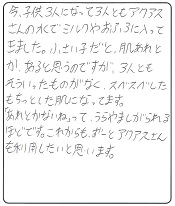 今、子供3人になって3人ともアクアス
さんの水でミルクやおふろに入って
きました。小さい子だと、肌あれと
か、あると思うのですが、3人とも
そういったものがなく、スベスベした
もちっとした肌になってます。
「あれとかないねって、うらやましがられる
ほどです。これからも、ずーとアクアスさん
を利用したいと思います。